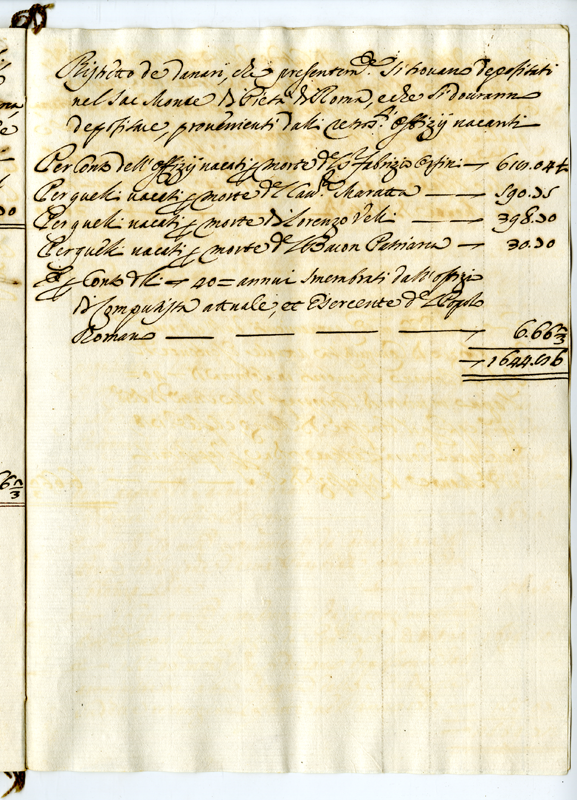 Ristretto de danari, che presentem.te si trovano depositati
nel Sac Monte di Pietà di Roma, e che si dovranno
depositare, provenienti dalli Offizij vacanti
Per Conto dell'Offizij vacati p morte del Fabrizio
Per quelli vacati p morte del Cav.r Maratta — 590.35
Per quelli vacati p morte di Lorenzo Velli — 398.30
Per quelli vacati p morte del Baron Patriarca — 30.30
E p Conto delli 40 = annui smembrati dall'offizio
di Computista attuale, et Esercente del Popolo
Romano — 6.66 2/3
1644.616
6 2/3